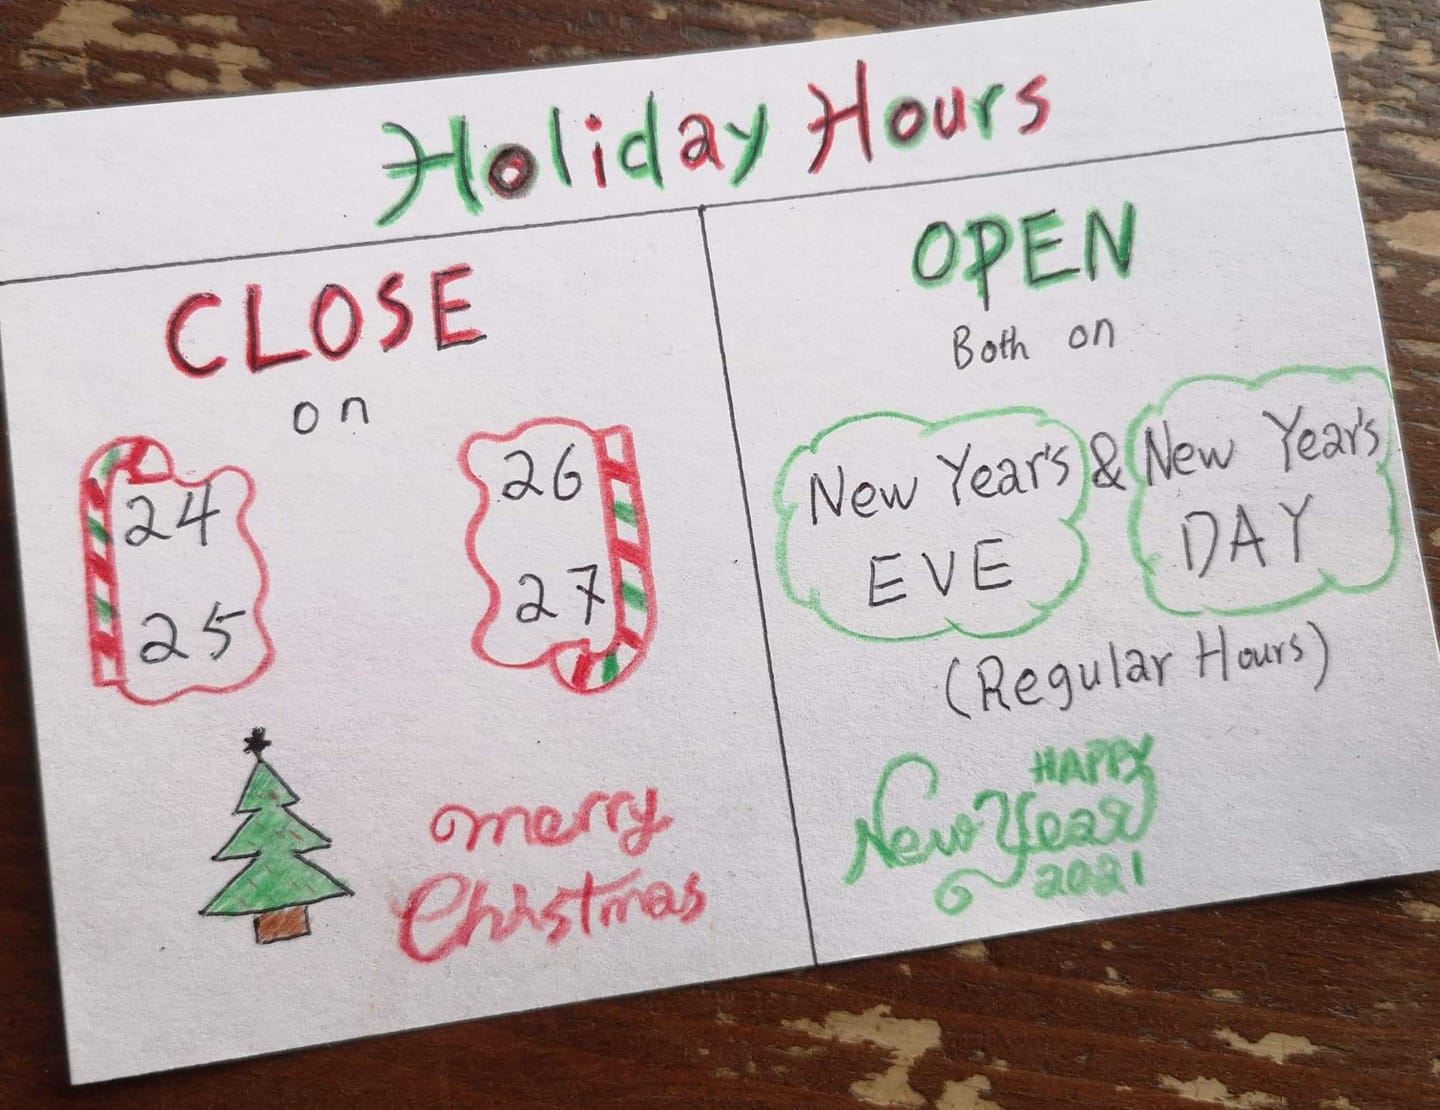 Holiday Hours
CLOSE
on
24
25
26
27
merry
Christmas
OPEN
Both on
New Year's & New Year's
EVE DAY
(Regular Hours)
HAPPY
New Year
2021